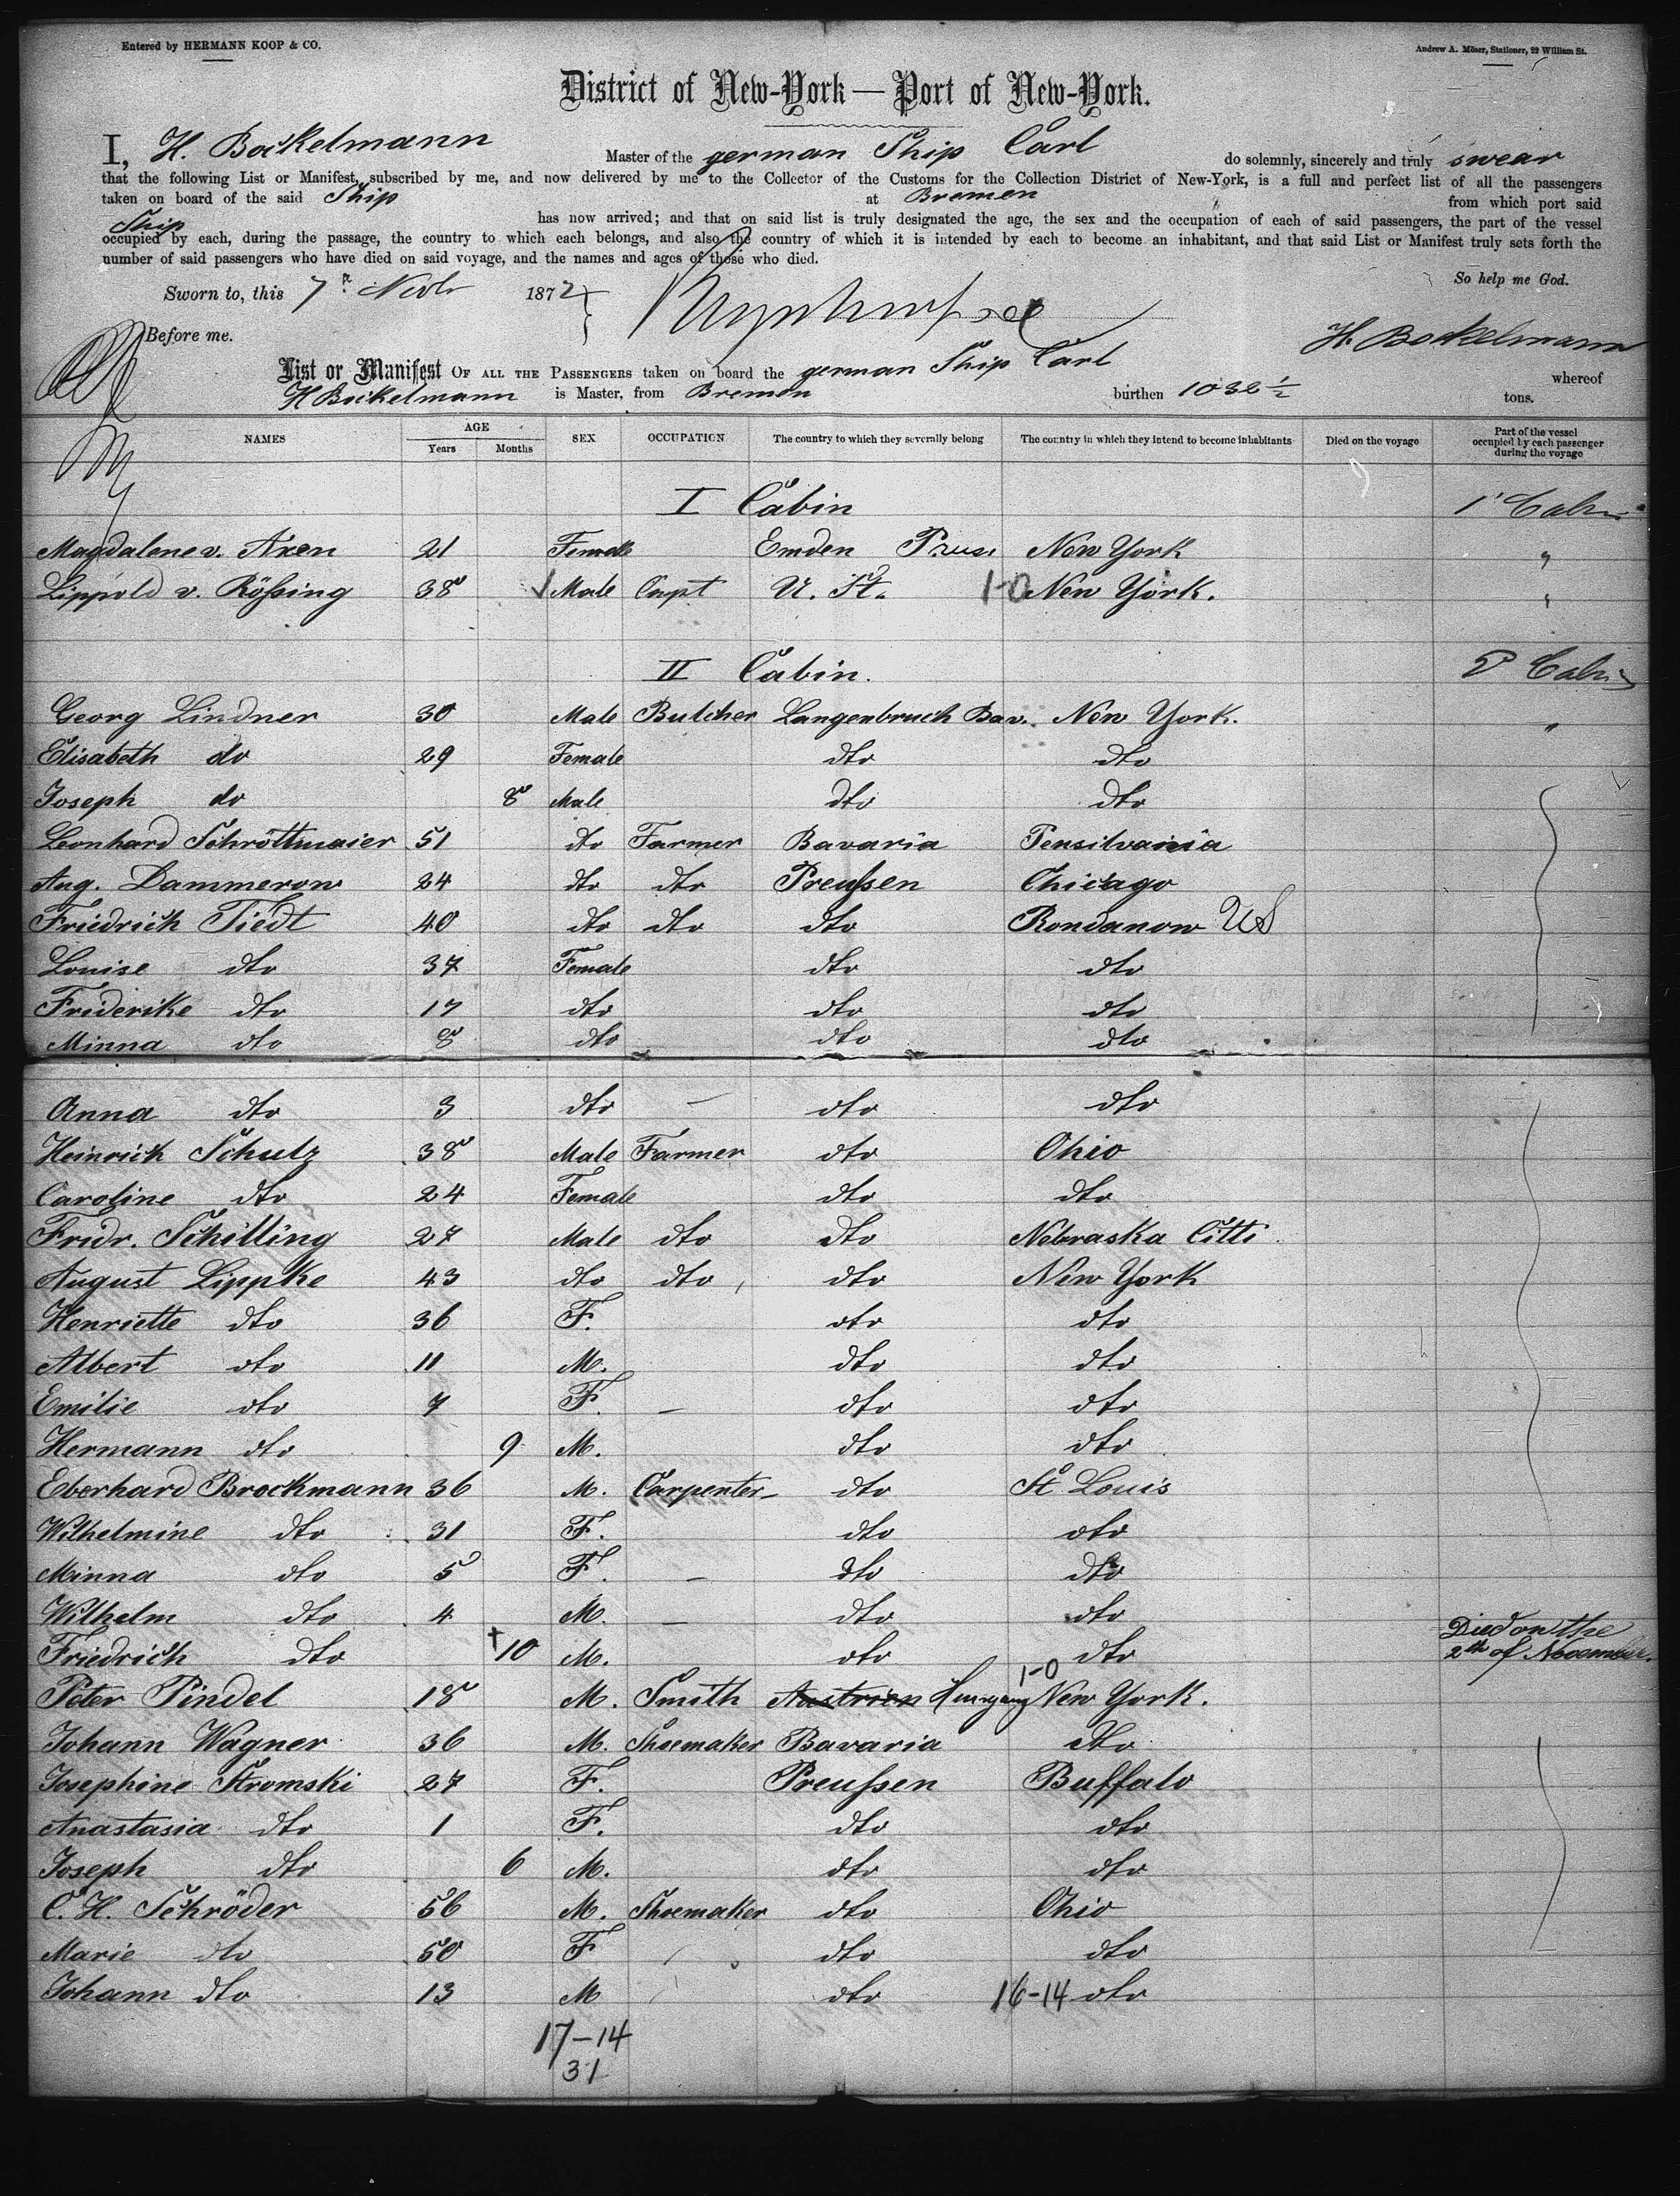 Entered by HERMANN KOOP & CO.
Andrew A. Möser, Stationer, 22 William St.
District of New-York — Port of New-York.
I, H. Bockelmann Master of the german Ship Carl do solemnly, sincerely and truly swear
that the following List or Manifest, subscribed by me, and now delivered by me to the Collector of the Customs for the Collection District of New-York, is a full and perfect list of all the passengers
taken on board of the said Ship at Bremen from which port said
Ship has now arrived; and that on said list is truly designated the age, the sex and the occupation of each of said passengers, the part of the vessel
occupied by each, during the passage, the country to which each belongs, and also the country of which it is intended by each to become an inhabitant, and that said List or Manifest truly sets forth the
number of said passengers who have died on said voyage, and the names and ages of those who died.
So help me God.
Sworn to, this 7 Novbr 1872
Before me.
H. Bockelmann
List or Manifest OF ALL THE PASSENGERS taken on board the german Ship Carl whereof
H Bockelmann is Master, from Bremen birthen 1032 1/2 tons.
NAMES AGE Years Months SEX OCCUPATION The country to which they severally belong The country in which they intend to become inhabitants Died on the voyage Part of the vessel occupied by each passenger during the voyage
I Cabin 1' Cabin
Magdalene v. Axen 21 Female Emden Prus. New York "
Lippold v. Rößing 38 Male Capt U. St. 1-0 New York. "
II Cabin. 2' Cabin
Georg Lindner 30 Male Butcher Langenbruch Bav. New York. "
Elisabeth do 29 Female dto dto
Joseph do 8 Male dto dto
Leonhard Schrottmaier 51 dto Farmer Bavaria Pensilvania
Aug. Dammerow 24 dto dto Preußen Chicago
Friedrich Tiedt 40 dto dto dto Rondanow US
Louise dto 37 Female dto dto
Friderike dto 17 dto dto dto
Minna dto 8 dto dto dto
Anna dto 3 dto — dto dto
Heinrich Schulz 38 Male Farmer dto Ohio
Caroline dto 24 Female dto dto
Fridr. Schilling 27 Male dto dto Nebraska Citti
August Lippke 43 dto dto dto New York
Henriette dto 36 F. dto dto
Albert dto 11 M. dto dto
Emilie dto 7 F. — dto dto
Hermann dto 9 M. dto dto
Eberhard Brockmann 36 M. Carpenter dto St Louis
Wilhelmine dto 31 F. dto dto
Minna dto 5 F. — dto dto
Wilhelm dto 4 M. — dto dto
Friedrich dto †10 M. dto dto Died on the 2th of November.
Peter Pindel 18 M. Smith Austrien Hungary 1-0 New York.
Johann Wagner 36 M. Shoemaker Bavaria dto
Josephine Stromski 27 F. Preußen Buffalo
Anastasia dto 1 F. dto dto
Joseph dto 6 M. dto dto
C. H. Schröder 56 M. Shoemaker dto Ohio
Marie dto 50 F dto dto
Johann dto 13 M dto 16-14 dto
17-14
31